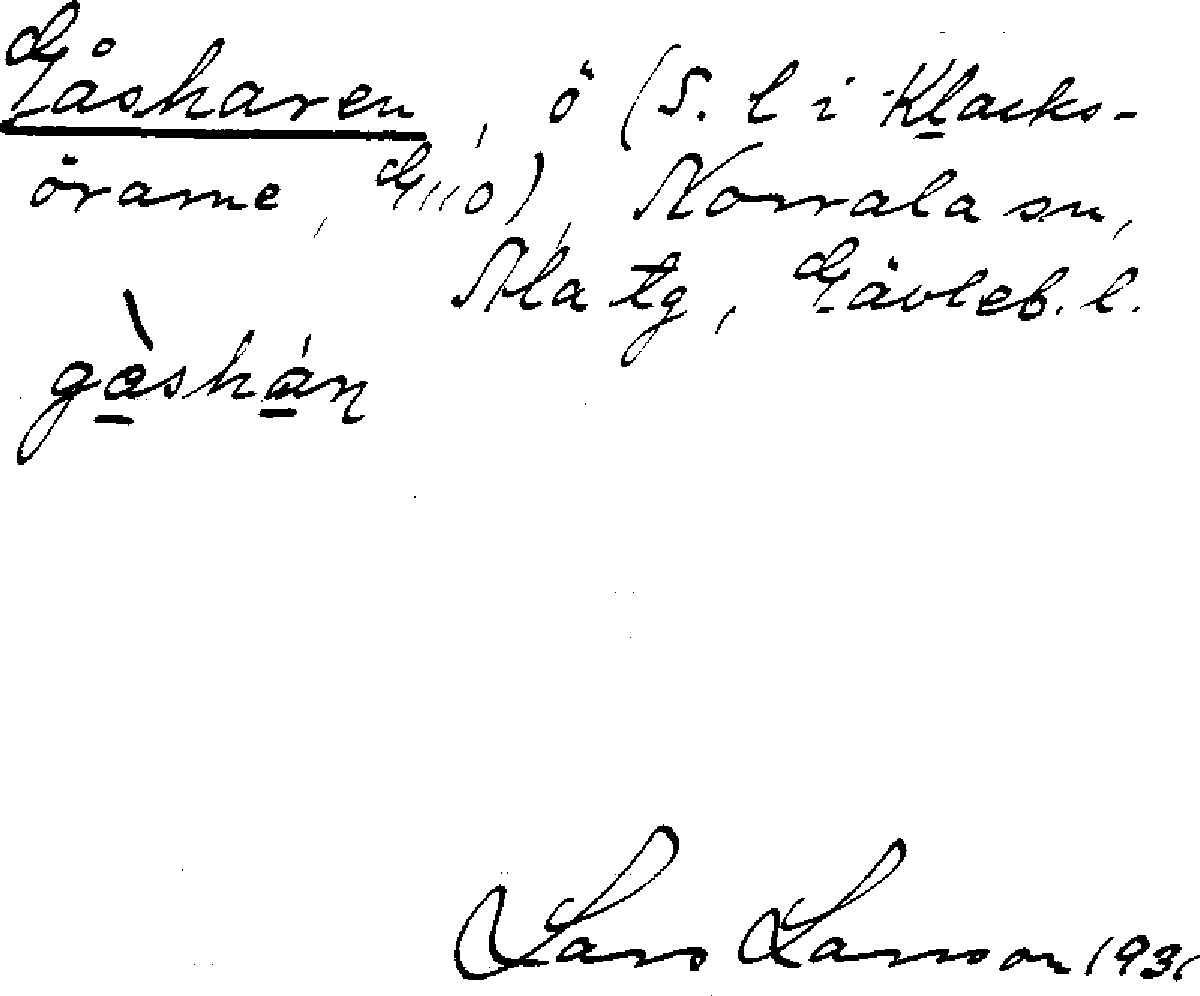 Gåsharen, ö (S. l i Klacks-
örarne, G110), Norrala sn,
Ala tg, Gävleb. l.
gàshán
Lars Larsson 1931